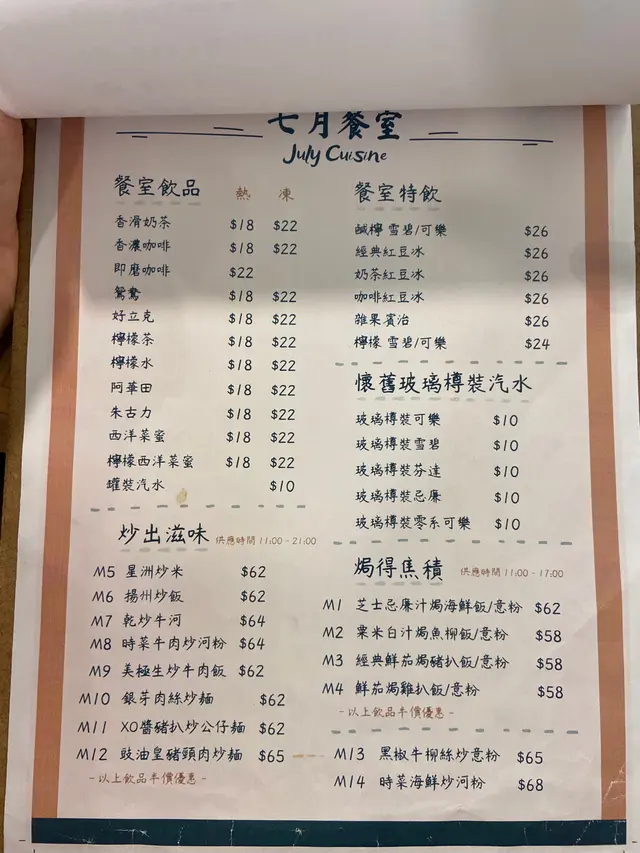 七月餐室
July Cuisine
餐室飲品 熱 凍
香滑奶茶 $18 $22
香濃咖啡 $18 $22
即磨咖啡 $22
鴛鴦 $18 $22
好立克 $18 $22
檸檬茶 $18 $22
檸檬水 $18 $22
阿華田 $18 $22
朱古力 $18 $22
西洋菜蜜 $18 $22
檸檬西洋菜蜜 $18 $22
罐裝汽水 $10
炒出滋味 供應時間 11:00 - 21:00
M5 星洲炒米 $62
M6 揚州炒飯 $62
M7 乾炒牛河 $64
M8 時菜牛肉炒河粉 $64
M9 美極生炒牛肉飯 $62
M10 銀芽肉絲炒麵 $62
M11 XO醬豬扒炒公仔麵 $62
M12 豉油皇豬頸肉炒麵 $65
- 以上飲品半價優惠 -
餐室特飲
鹹檸 雪碧/可樂 $26
經典紅豆冰 $26
奶茶紅豆冰 $26
咖啡紅豆冰 $26
雜果賓治 $26
檸檬 雪碧/可樂 $24
懷舊玻璃樽裝汽水
玻璃樽裝可樂 $10
玻璃樽裝雪碧 $10
玻璃樽裝芬達 $10
玻璃樽裝忌廉 $10
玻璃樽裝零系可樂 $10
焗得焦積 供應時間 11:00 - 17:00
M1 芝士忌廉汁焗海鮮飯/意粉 $62
M2 粟米白汁焗魚柳飯/意粉 $58
M3 經典鮮茄焗豬扒飯/意粉 $58
M4 鮮茄焗雞扒飯/意粉 $58
- 以上飲品半價優惠 -
M13 黑椒牛柳絲炒意粉 $65
M14 時菜海鮮炒河粉 $68